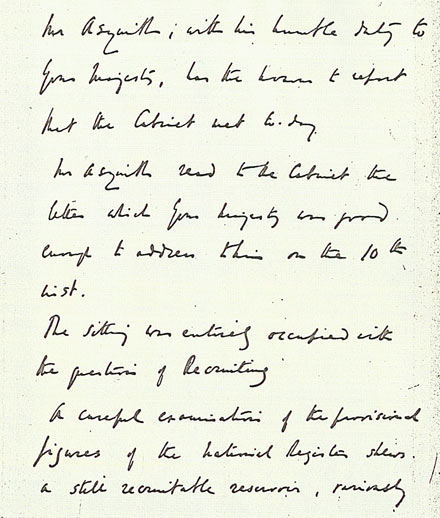 Mr Asquith, with his humble duty to
Your Majesty, has the honour to report
that the Cabinet met to-day
Mr Asquith read to the Cabinet the
letter which Your Majesty was good
enough to address to him on the 10th
inst.
The sitting was entirely occupied with
the question of Recruiting
A careful examination of the provisional
figures of the National Register shews
a still recruitable reservoir, variously